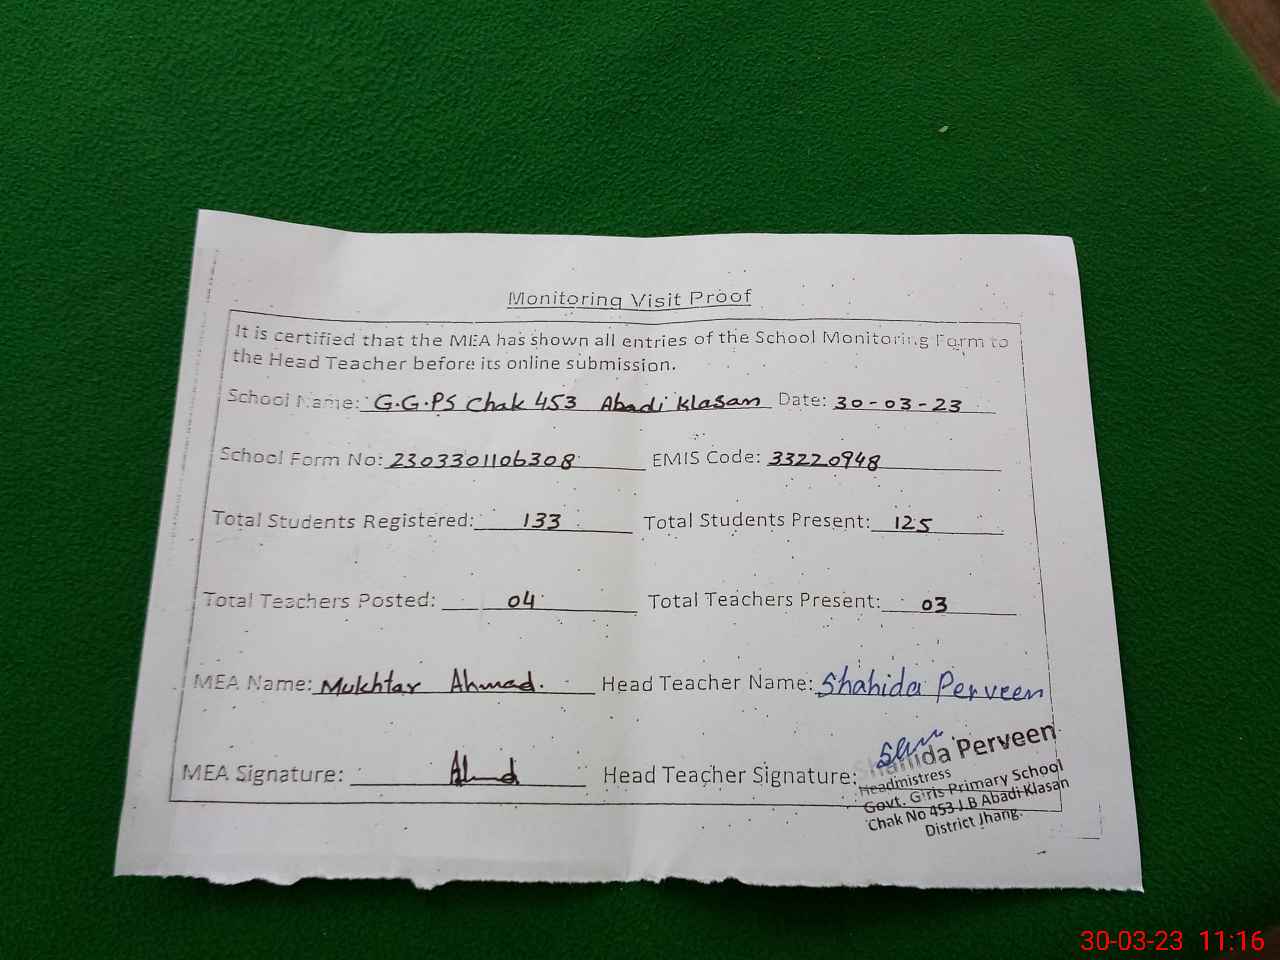 Monitoring Visit Proof
It is certified that the MEA has shown all entries of the School Monitoring Form to
the Head Teacher before its online submission.
School Name: G.G.PS Chak 453 Abadi Klasan Date: 30-03-23
School Form No: 2303301106308 EMIS Code: 33220948
Total Students Registered: 133 Total Students Present: 125
Total Teachers Posted: 04 Total Teachers Present: 03
MEA Name: Mukhtar Ahmad. Head Teacher Name: Shahida Perveen
MEA Signature: Ahmd Head Teacher Signature:
Shahida Perveen
Headmistress
Govt. Girls Primary School
Chak No 453 J.B Abadi Klasan
District Jhang.
30-03-23 11:16